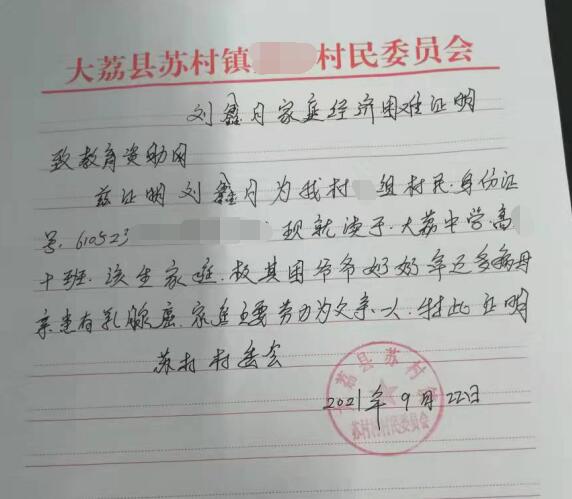 大荔县苏村镇 村民委员会
刘鑫月家庭经济困难证明
致教育资助网
兹证明刘鑫月为我村 组村民.身份证
号.610523 现就读于.大荔中学.高
十班.该生家庭.极其困爷爷奶奶年迈多病母
亲患有乳腺癌.家里主要劳力为父亲一人.特此证明
苏村村委会
2021年9月22日
大荔县苏村镇
苏村村村民委员会